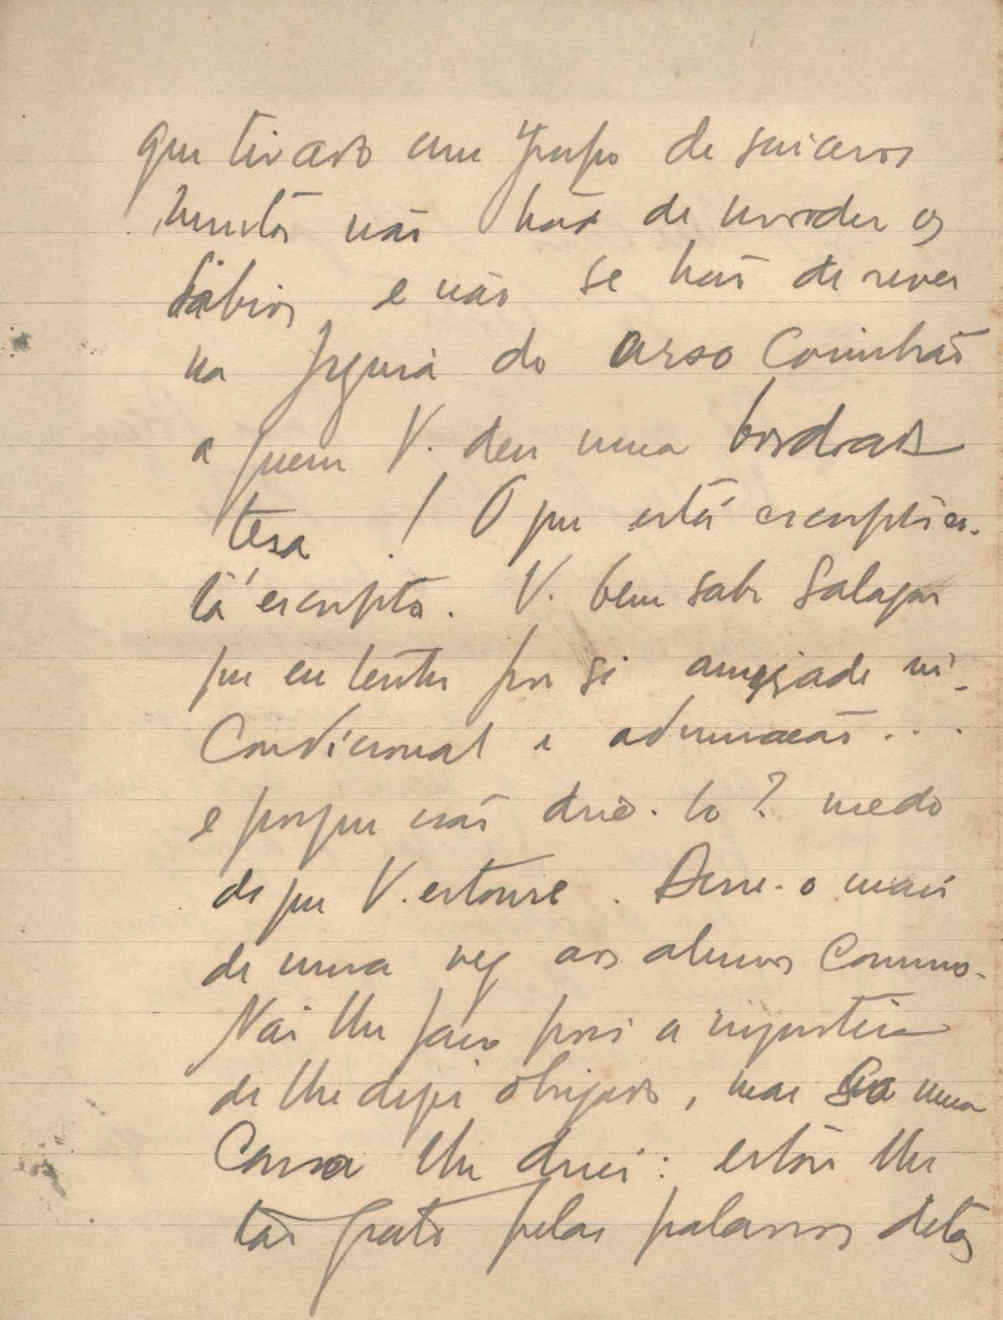 que tirado um grupo de suicaros
muitos não hão de morder os
labios e não se hão de rever
na figura do urso Coimbrão
a quem V. deu uma bordoada
tesa! O que está escripto es-
tá escripto. V. bem sabe Salazar
que eu tenho por si amizade in-
condicional e admiração...
e porque não dize-lo? medo
de que V. estoure. Disse-o mais
de uma vez aos alunos communs.
Não lhe faço pois a injustiça
de lhe dizer obrigado, mas so uma
Cousa lhe direi: estou lhe
tão grato pelas palavras ditas